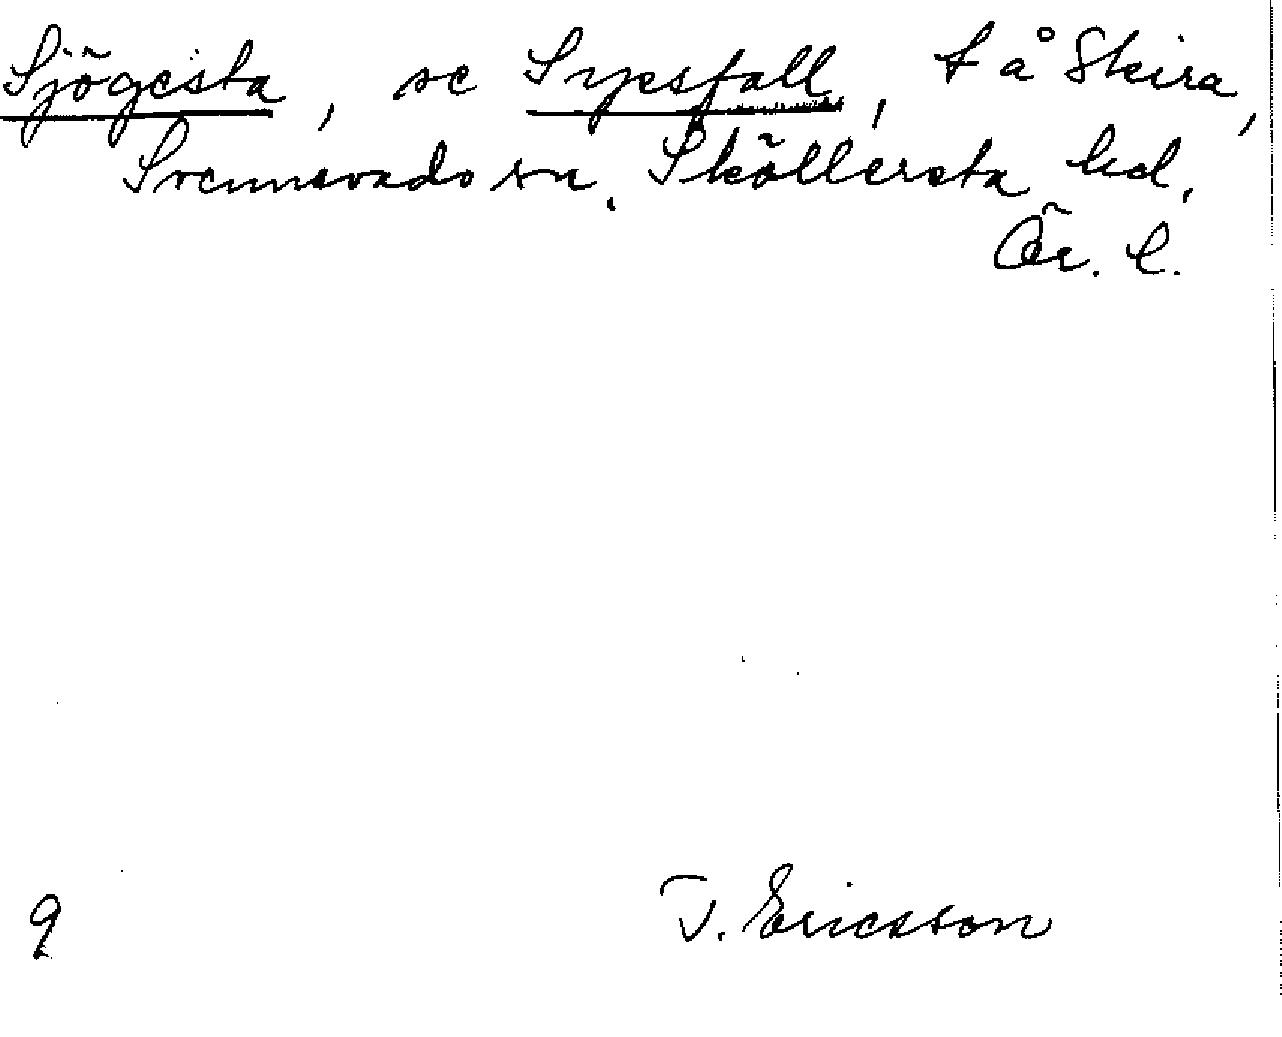 Sjögesta, se Sypesfall, t å Skira,
Svennevads sn, Sköllersta hd,
Ör. l.
T. Ericsson
9